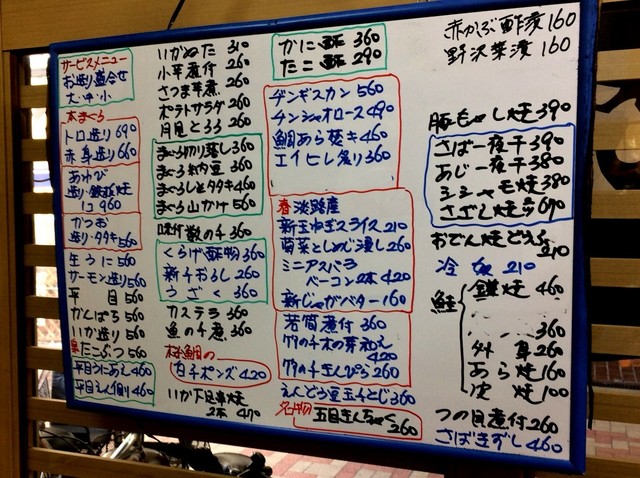 サービスメニュー
お造り盛合せ
大・中・小
本まぐろ
トロ造り 690
赤身造り 660
あわび
造り・鉄板焼
に 960
かつお
造り・タタキ 560
生うに 560
サーモン造り 560
平目 560
かんぱち 560
いか造り 560
たこぶつ 560
平目にあえ 460
平目えん側 460
いかぬた 310
小芋煮付 260
さつま芋煮 260
ポテトサラダ 260
月見とろろ 260
まぐろ切り落し 360
まぐろ納豆 360
まぐろしとタタキ 460
まぐろ山かけ 560
味付数の子 360
くらげ酢物 360
新子おろし 260
うざく 360
カステラ 360
魚の子煮 360
桜鯛の
白子ポンズ 420
いか下足串焼
2本 470
かに酢 360
たこ酢 290
ヂンギスカン 560
チンシャオロース 490
鯛あら焚き 460
エイヒレ炙り 360
春 淡路産
新玉ねぎスライス 210
菊菜としめじ浸し 260
ミニアスパラ
ベーコン2本 420
新じゃがバター 160
若筍煮付 360
竹の子木の芽和え
420
竹の子きんぴら 260
えんどう豆玉子とじ 360
名物 五目きんちゃく
260
赤かぶ酢漬 160
野沢菜漬 160
豚もやし焼 390
さば一夜干 390
あじ一夜干 380
シシャモ焼 380
さざし焼 670
おでん焼どうふ
210
冷奴 210
鮭
鎌焼 460
360
外身 260
あら焼 160
皮焼 100
つの貝煮付 260
さばきずし 460